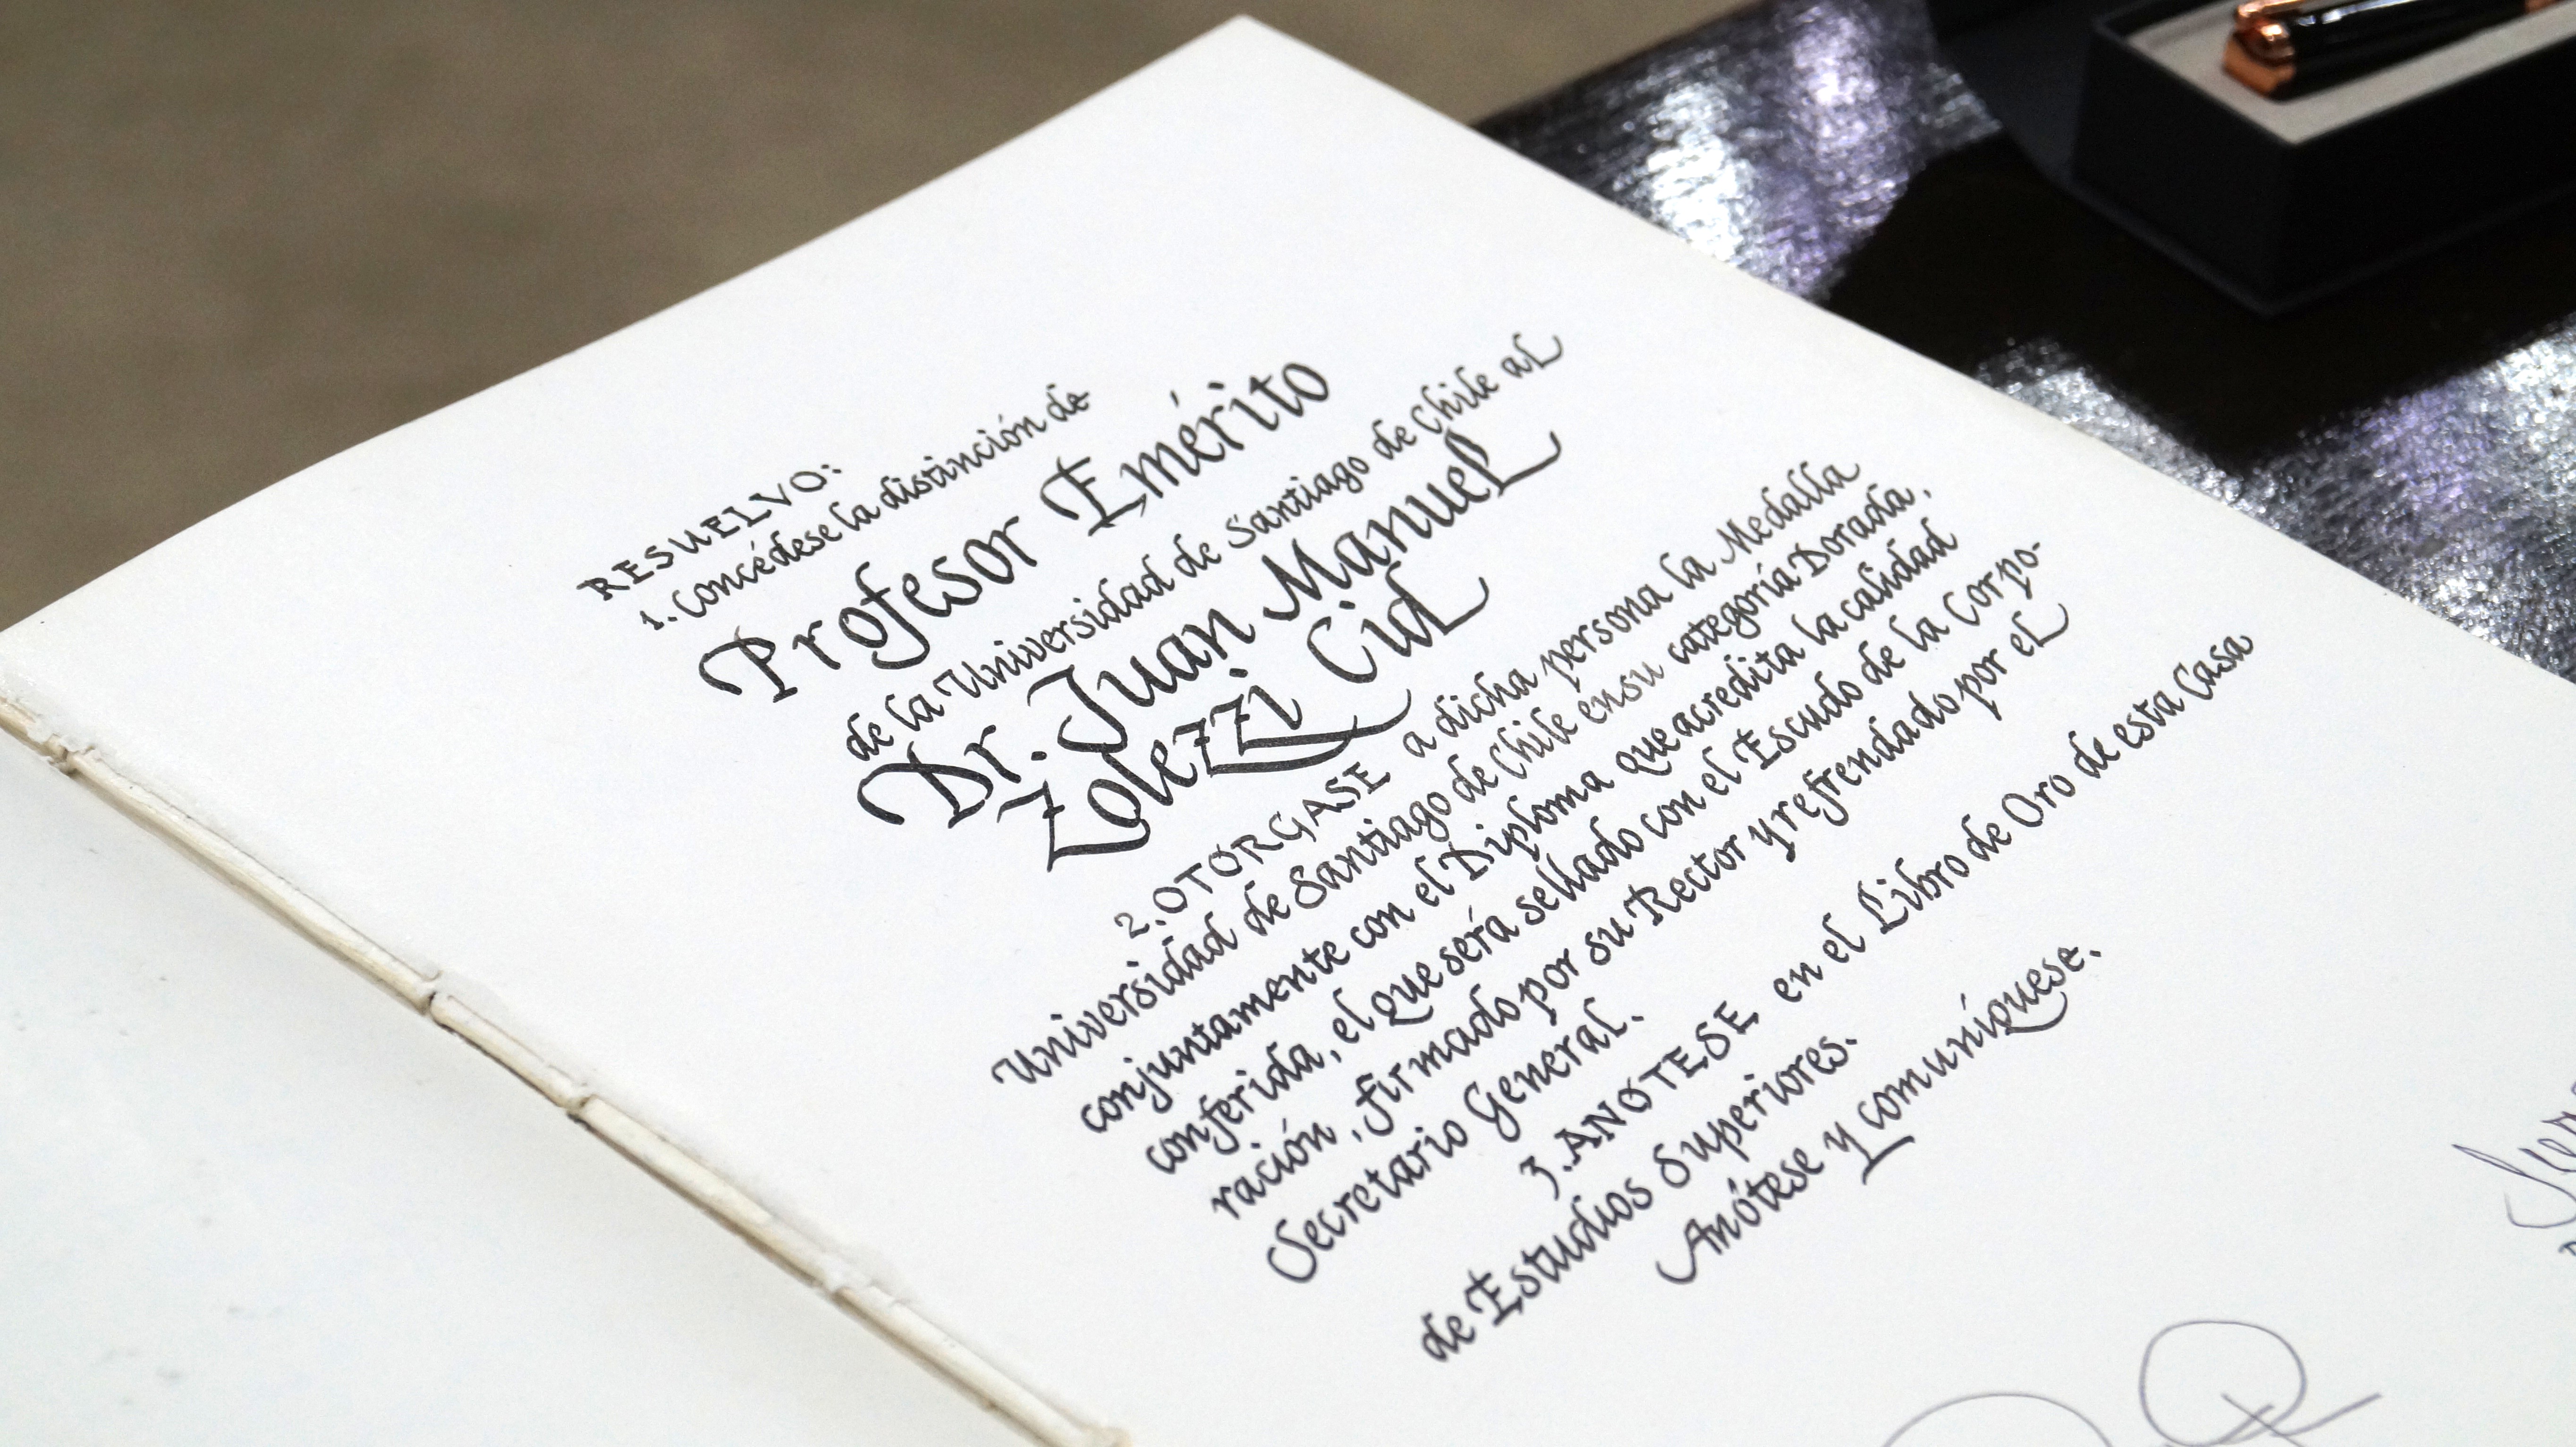 RESUELVO:
1. Concédese la distinción de
Profesor Emérito
de la Universidad de Santiago de Chile al
Dr. Juan Manuel
Zolezzi Cid
2. OTÓRGASE a dicha persona la Medalla
Universidad de Santiago de Chile en su categoría Dorada,
conjuntamente con el Diploma que acredita la calidad
conferida, el que será sellado con el Escudo de la Corpo-
ración, firmado por su Rector y refrendado por el
Secretario General.
3. ANÓTESE en el Libro de Oro de esta Casa
de Estudios Superiores.
Anótese y comuníquese.